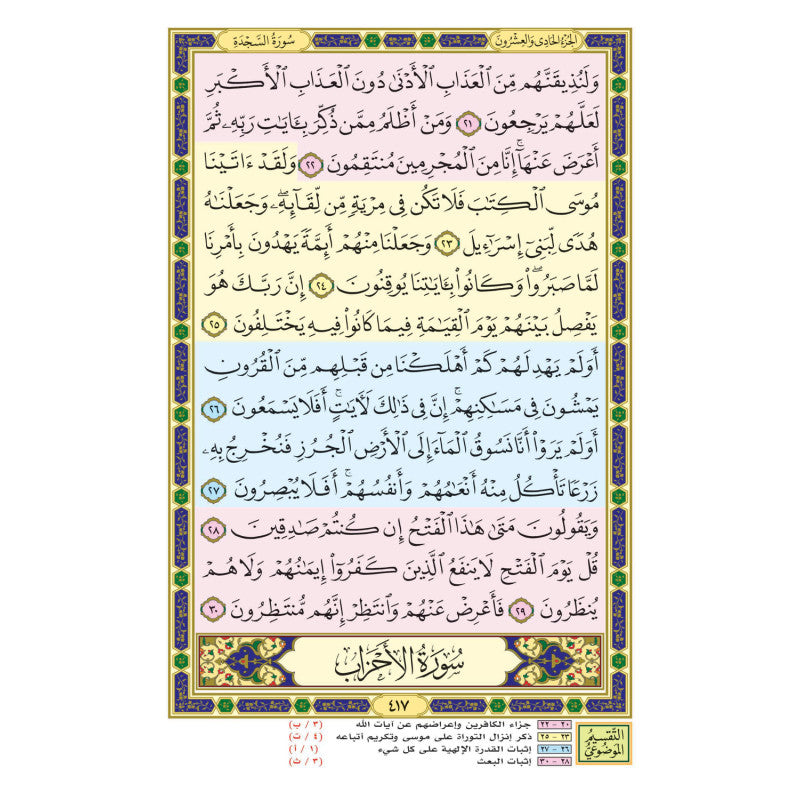 الجزء الحادى والعشرون
سورة السجدة
وَلَنُذِيقَنَّهُم مِّنَ ٱلْعَذَابِ ٱلْأَدْنَىٰ دُونَ ٱلْعَذَابِ ٱلْأَكْبَرِ
لَعَلَّهُمْ يَرْجِعُونَ ٢١ وَمَنْ أَظْلَمُ مِمَّن ذُكِّرَ بِـَٔايَٰتِ رَبِّهِۦ ثُمَّ
أَعْرَضَ عَنْهَآ ۚ إِنَّا مِنَ ٱلْمُجْرِمِينَ مُنتَقِمُونَ ٢٢ وَلَقَدْ ءَاتَيْنَا
مُوسَى ٱلْكِتَٰبَ فَلَا تَكُن فِى مِرْيَةٍ مِّن لِّقَآئِهِۦ ۖ وَجَعَلْنَٰهُ
هُدًى لِّبَنِىٓ إِسْرَٰٓءِيلَ ٢٣ وَجَعَلْنَا مِنْهُمْ أَئِمَّةً يَهْدُونَ بِأَمْرِنَا
لَمَّا صَبَرُوا۟ ۖ وَكَانُوا۟ بِـَٔايَٰتِنَا يُوقِنُونَ ٢٤ إِنَّ رَبَّكَ هُوَ
يَفْصِلُ بَيْنَهُمْ يَوْمَ ٱلْقِيَٰمَةِ فِيمَا كَانُوا۟ فِيهِ يَخْتَلِفُونَ ٢٥
أَوَلَمْ يَهْدِ لَهُمْ كَمْ أَهْلَكْنَا مِن قَبْلِهِم مِّنَ ٱلْقُرُونِ
يَمْشُونَ فِى مَسَٰكِنِهِمْ ۚ إِنَّ فِى ذَٰلِكَ لَـَٔايَٰتٍ ۖ أَفَلَا يَسْمَعُونَ ٢٦
أَوَلَمْ يَرَوْا۟ أَنَّا نَسُوقُ ٱلْمَآءَ إِلَى ٱلْأَرْضِ ٱلْجُرُزِ فَنُخْرِجُ بِهِۦ
زَرْعًا تَأْكُلُ مِنْهُ أَنْعَٰمُهُمْ وَأَنفُسُهُمْ ۚ أَفَلَا يُبْصِرُونَ ٢٧
وَيَقُولُونَ مَتَىٰ هَٰذَا ٱلْفَتْحُ إِن كُنتُمْ صَٰدِقِينَ ٢٨
قُلْ يَوْمَ ٱلْفَتْحِ لَا يَنفَعُ ٱلَّذِينَ كَفَرُوٓا۟ إِيمَٰنُهُمْ وَلَا هُمْ
يُنظَرُونَ ٢٩ فَأَعْرِضْ عَنْهُمْ وَٱنتَظِرْ إِنَّهُم مُّنتَظِرُونَ ٣٠
سُورَةُ الأَحْزَابِ
٤١٧
التقسيم الموضوعي
٢٠ - ٢٢ جزاء الكافرين وإعراضهم عن آيات الله (٣ / ب)
٢٣ - ٢٥ ذكر إنزال التوراة على موسى وتكريم أتباعه (٤ / ت)
٢٦ - ٢٧ إثبات القدرة الإلهية على كل شيء (١ / أ)
٢٨ - ٣٠ إثبات البعث (٣ / ث)